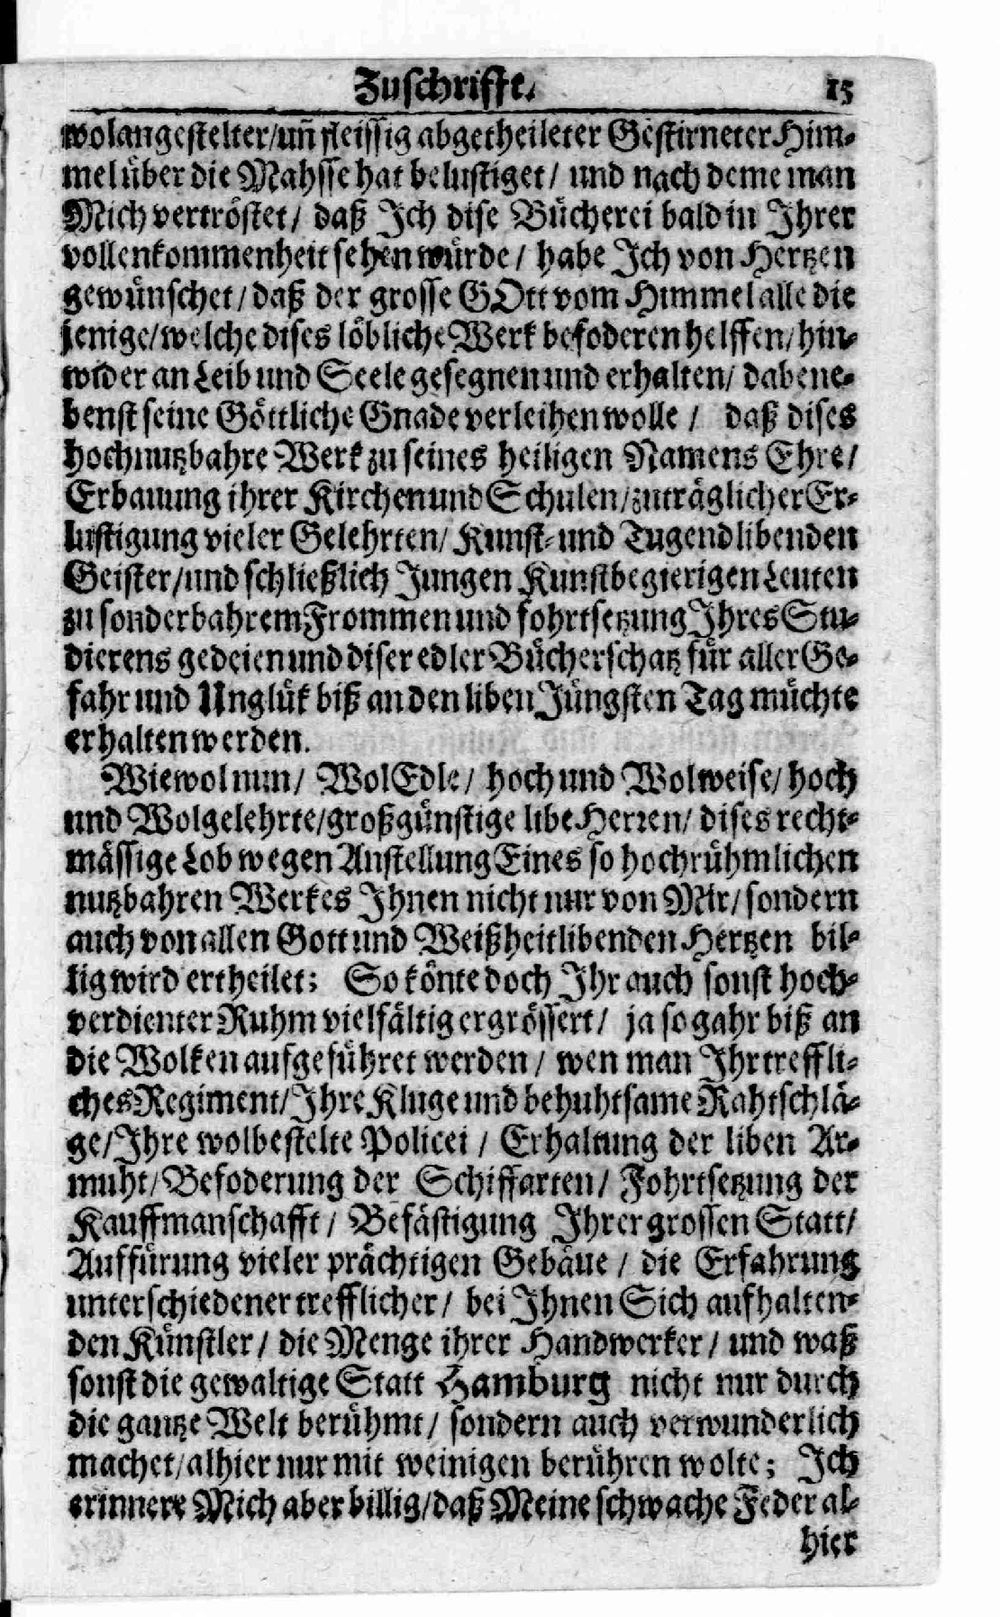 Zuschrifft. 15
wolangestelter/uñ fleissig abgetheileter Gestirneter Him-
mel über die Mahsse hat belustiget/ und nach deme man
Mich vertröstet/ daß Ich dise Bücherei bald in Ihrer
vollenkommenheit sehen würde/ habe Ich von Hertzen
gewünschet/ daß der grosse GOtt vom Himmel alle die
jenige/welche dises löbliche Werk befoderen helffen/hin-
wider an Leib und Seele gesegnen und erhalten/ dabene-
benst seine Göttliche Gnade verleihen wolle/ daß dises
hochnutzbahre Werk zu seines heiligen Namens Ehre/
Erbauung ihrer Kirchen und Schulen/zuträglicher Er-
lustigung vieler Gelehrten/ Kunst- und Tugendlibenden
Geister/und schließlich Jungen Kunstbegierigen Leuten
zu sonderbahrem Frommen und fohrtsetzung Ihres Stu-
dierens gedeien und diser edler Bücherschatz für aller Ge-
fahr und Unglük biß an den liben Jüngsten Tag müchte
erhalten werden.
Wiewol nun/ WolEdle/ hoch und Wolweise/ hoch
und Wolgelehrte/großgünstige libe Herren/ dises recht-
mässige Lob wegen Anstellung Eines so hochrühmlichen
nutzbahren Werkes Ihnen nicht nur von Mir/ sondern
auch von allen Gott und Weißheitlibenden Hertzen bil-
lig wird ertheilet; So könte doch Ihr auch sonst hoch-
verdienter Ruhm vielfältig ergrössert/ ja so gahr biß an
die Wolken aufgeführet werden/ wen man Ihr treffli-
ches Regiment/Ihre Kluge und behuhtsame Rahtschlä-
ge/Ihre wolbestelte Policei/ Erhaltung der liben Ar-
muht/Befoderung der Schiffarten/ Fohrtsetzung der
Kauffmanschafft/ Befästigung Ihrer grossen Statt/
Auffürung vieler prächtigen Gebäue/ die Erfahrung
unterschiedener trefflicher/ bei Ihnen Sich aufhalten-
den Künstler/ die Menge ihrer Handwerker/ und waß
sonst die gewaltige Statt Hamburg nicht nur durch
die gantze Welt berühmt/ sondern auch verwunderlich
machet/alhier nur mit weinigen berühren wolte; Ich
erinnere Mich aber billig/daß Meine schwache Feder al-
hier